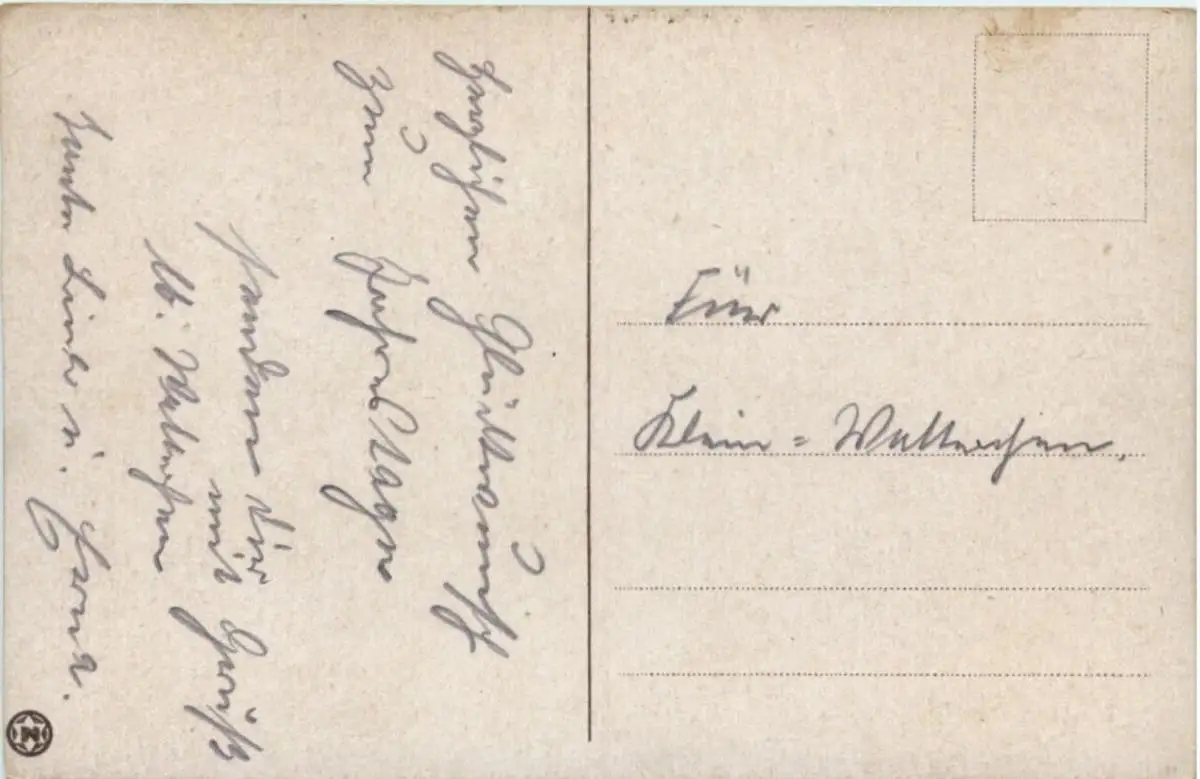 Herzlichen Glückwunsch
zum Geburtstage
senden Dir
mit Gruß
lb. Walterchen
Tante u. Erna.
Für
Klein = Walterchen.
N